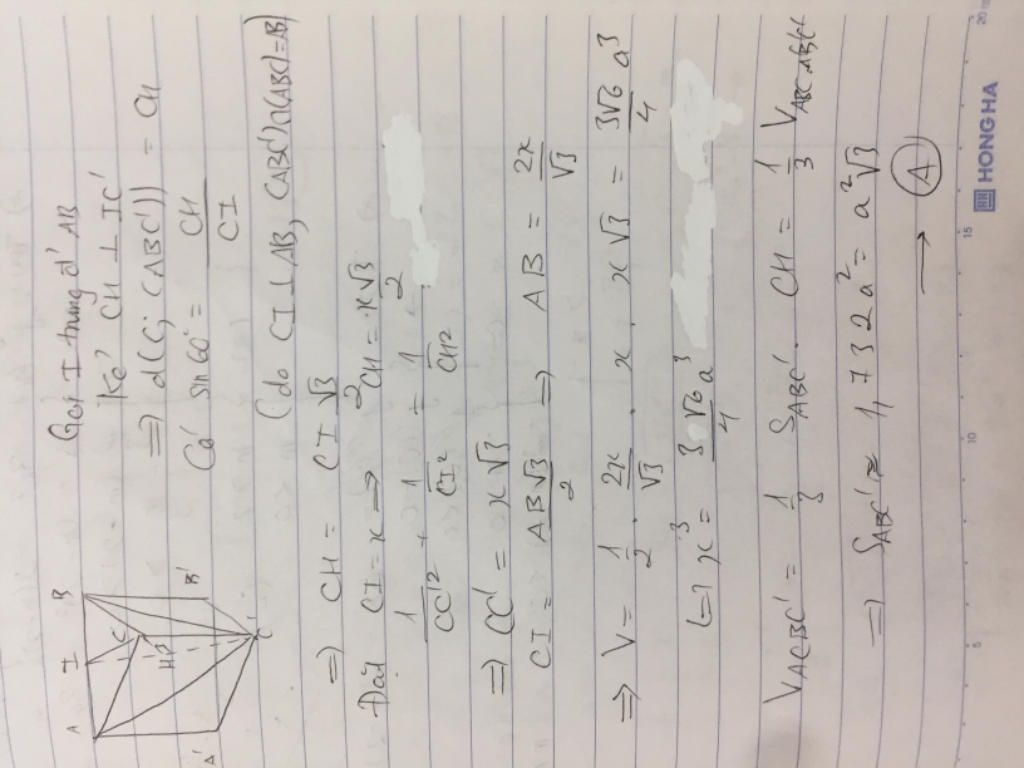 A I B
C
H
A' B'
C'
Gọi I trung đ' AB
Kẻ CH ⊥ IC'
=> d(C; (ABC')) = CH
Có sin60° = CH/CI
(do CI ⊥ AB, (ABC')∩(ABC)=AB)
=> CH = CI √3/2
Đặt CI = x → CH = x√3/2
1/CC'² + 1/CI² = 1/CH²
=> CC' = x√3
CI = AB√3/2 => AB = 2x/√3
=> V = 1/2 . 2x/√3 . x . x√3 = 3√6/4 a³
(=) x³ = 3√6/4 a³
V_ACBC' = 1/3 S_ABC' . CH = 1/3 V_ABC.A'B'C'
=> S_ABC' ≈ 1,732a² = a²√3
→ (A)
5 10 15 20
HONG HA